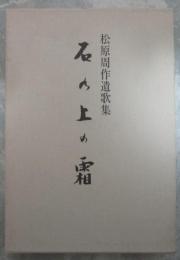 松原周作遺歌集
石の上の霜